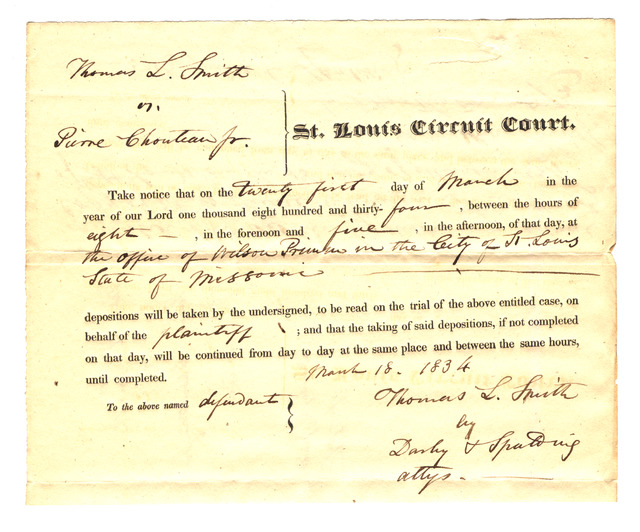 Thomas L. Smith
vs.
Pierre Chouteau Jr.
St. Louis Circuit Court.
Take notice that on the twenty first day of March in the
year of our Lord one thousand eight hundred and thirty-four, between the hours of
eight –, in the forenoon and five, in the afternoon, of that day, at
the office of Wilson Primm in the City of St. Louis
State of Missouri
depositions will be taken by the undersigned, to be read on the trial of the above entitled case, on
behalf of the plaintiff ; and that the taking of said depositions, if not completed
on that day, will be continued from day to day at the same place and between the same hours,
until completed.
March 18. 1834
To the above named defendant
Thomas L. Smith
by
Darby & Spalding
attys.